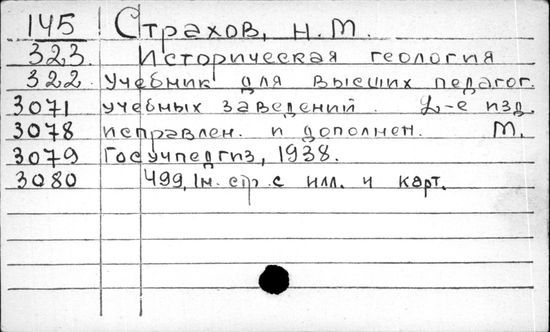 145 Страхов, Н.М.
323. Историческая геология
322. Учебник для высших педагог.
3071 учебных заведений. 2-е изд.
3078 исправлен. и дополнен. М.
3079 Госучпедгиз, 1938.
3080 499, 1н. стр. с илл. и карт.